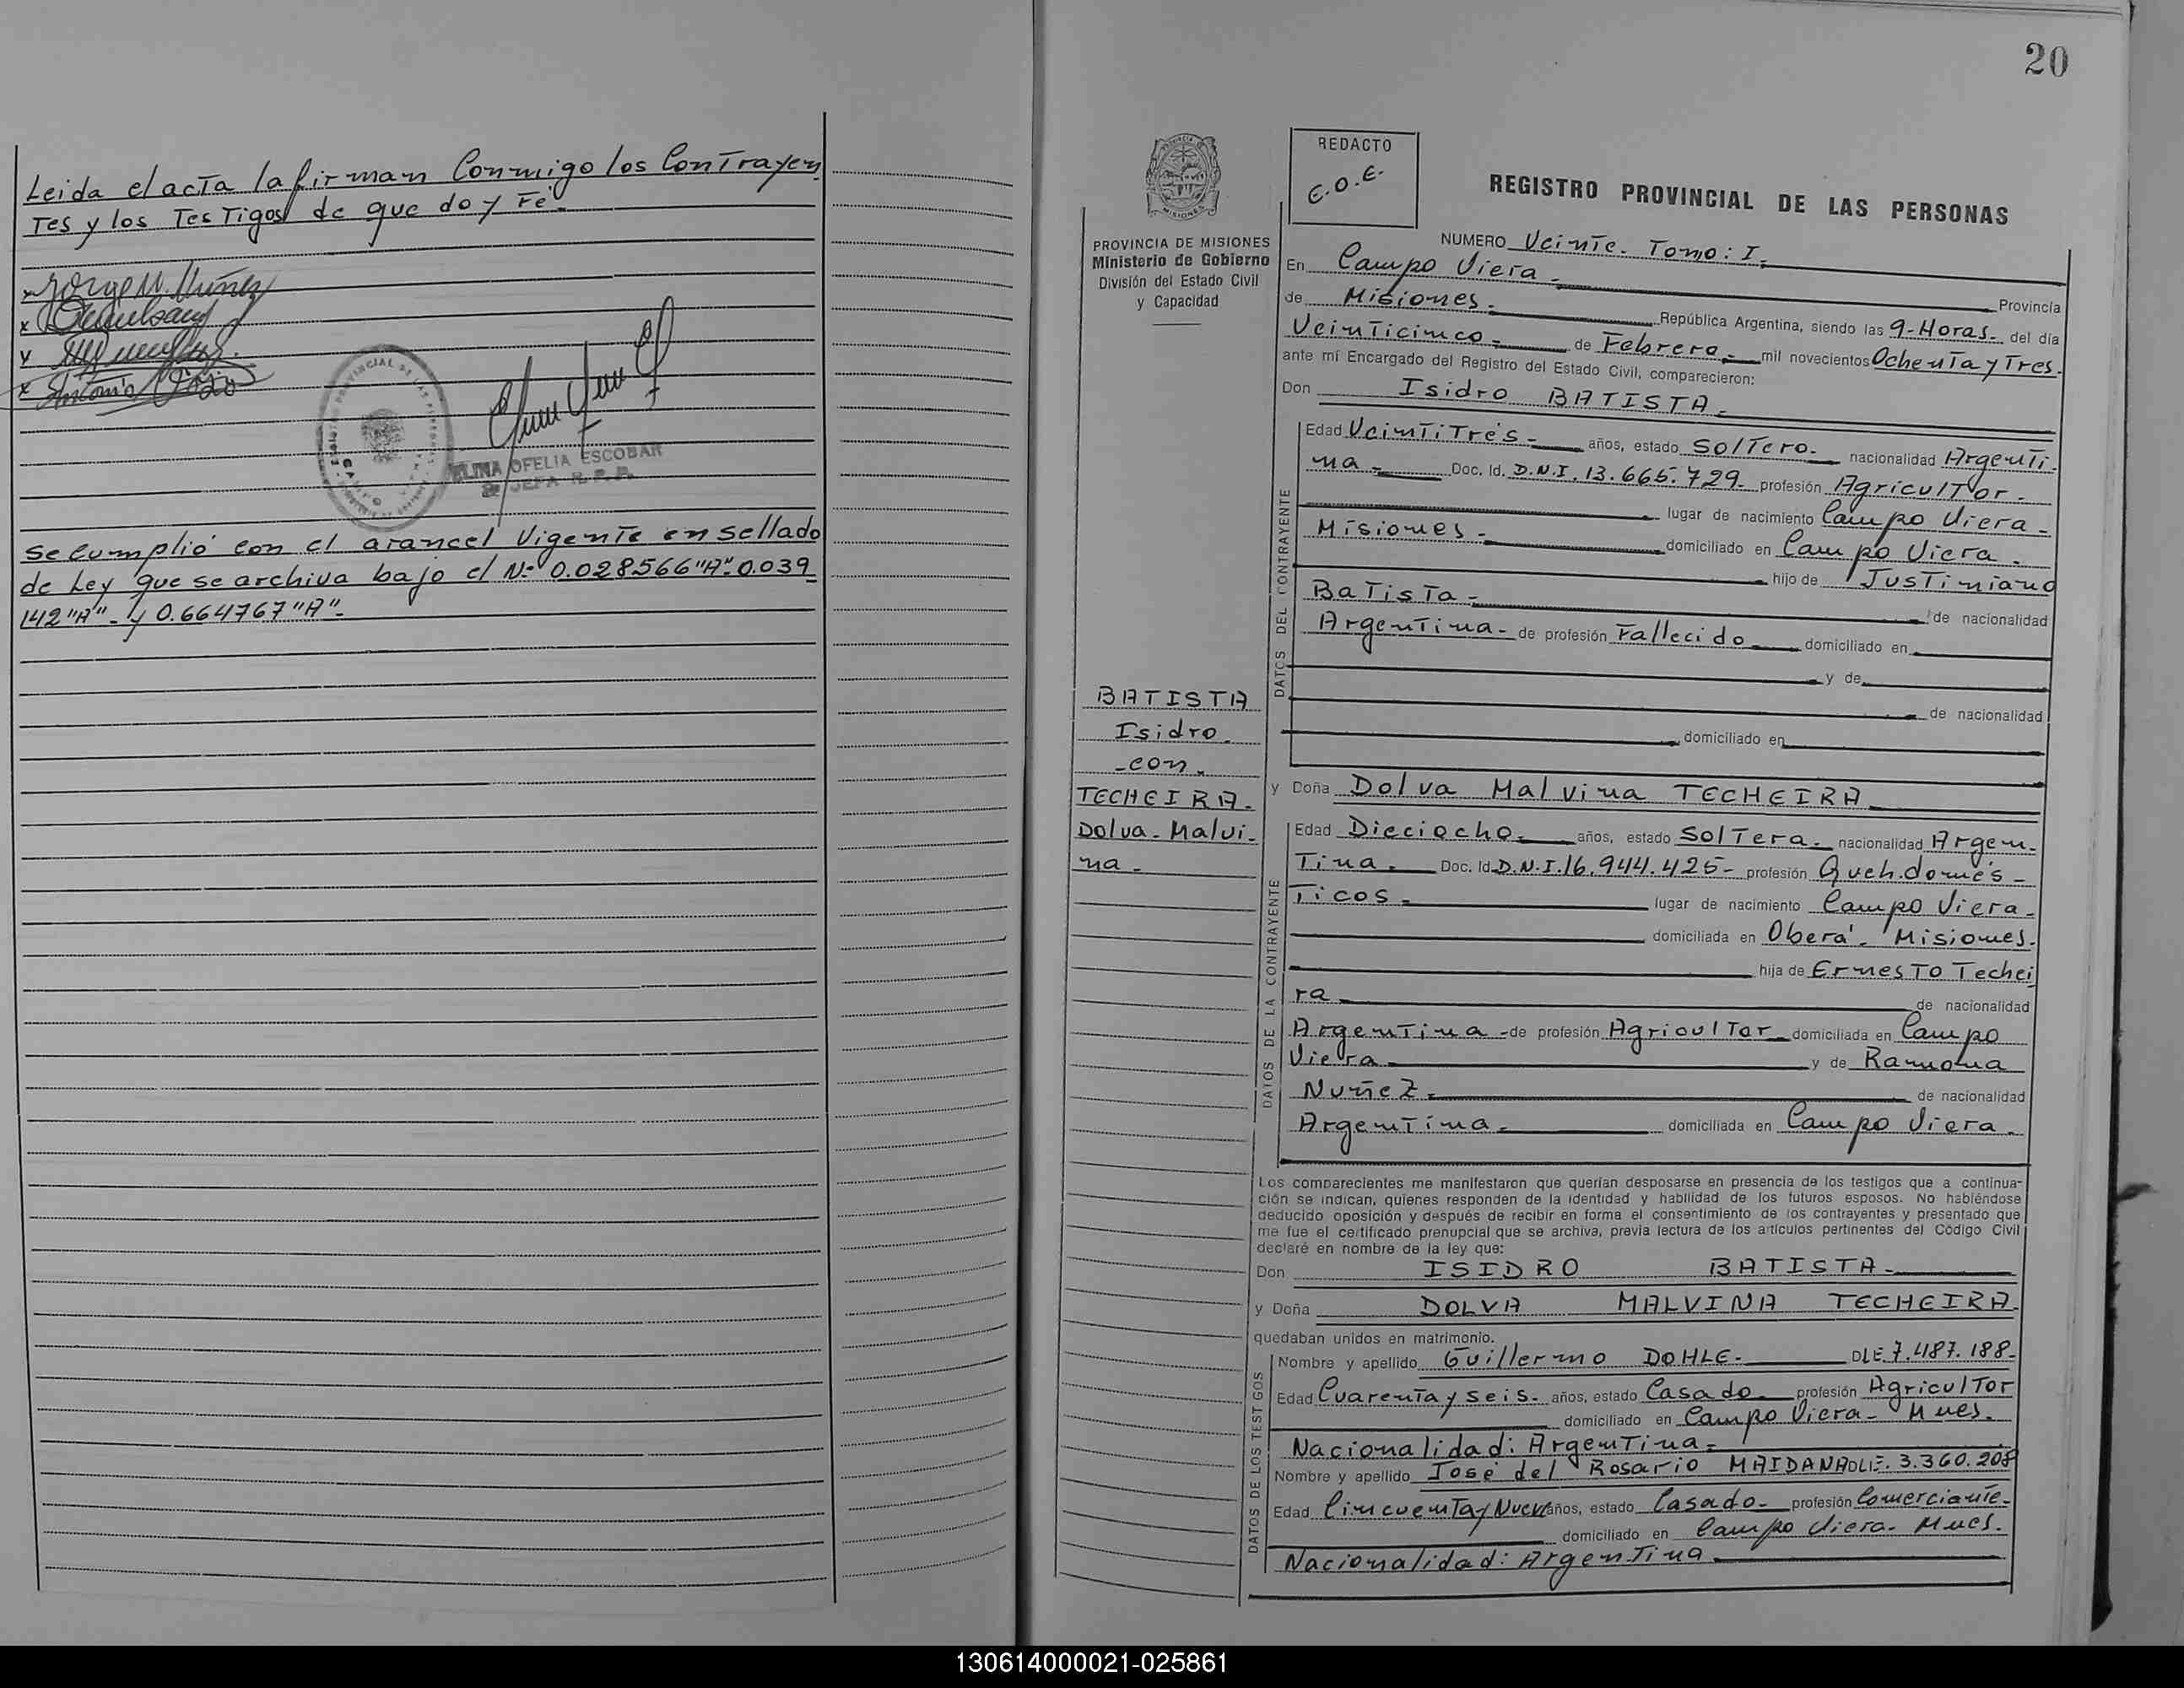 Leida el acta la firman Conmigo los Contrayen
Tes y los Testigos de que doy Fé-
x Jorge N. Núñez
x
x
x Antonio
ELINA OFELIA ESCOBAR
JEFA R.P.P.
Se Cumplió con el arancel Vigente en sellado
de Ley que se archiva bajo el Nº 0.028566 "A". 0.039
142 "A" - y 0.664767 "A"-
20
PROVINCIA DE MISIONES
Ministerio de Gobierno
División del Estado Civil
y Capacidad
BATISTA
Isidro
-con-
TECHEIRA-
Dolva-Malvi-
na-
REDACTO
E.O.E.
REGISTRO PROVINCIAL DE LAS PERSONAS
NUMERO Veinte. Tomo: I.
En Campo Viera- Provincia
de Misiones- República Argentina, siendo las 9-Horas- del día
Veinticinco- de Febrero- mil novecientos Ochenta y Tres.
ante mí Encargado del Registro del Estado Civil, comparecieron:
Don Isidro BATISTA-
DATOS DEL CONTRAYENTE
Edad Veintitrés- años, estado Soltero- nacionalidad Argenti-
na- Doc. Id. D.N.I. 13.665.729- profesión Agricultor-
lugar de nacimiento Campo Viera-
Misiones- domiciliado en Campo Viera-
hijo de Justiniano
Batista- de nacionalidad
Argentina- de profesión Fallecido domiciliado en
y de
de nacionalidad
domiciliado en
y Doña Dolva Malvina TECHEIRA
DATOS DE LA CONTRAYENTE
Edad Dieciocho- años, estado Soltera- nacionalidad Argen-
Tina- Doc. Id. D.N.I. 16.944.425- profesión Queh.domés-
Ticos- lugar de nacimiento Campo Viera-
domiciliada en Oberá- Misiones.
hija de Ernesto Techei
ra de nacionalidad
Argentina- de profesión Agricultor domiciliada en Campo
Viera y de Ramona
Nuñez- de nacionalidad
Argentina- domiciliada en Campo Viera-
Los comparecientes me manifestaron que querían desposarse en presencia de los testigos que a continua-
ción se indican, quienes responden de la identidad y habilidad de los futuros esposos. No habiéndose
deducido oposición y después de recibir en forma el consentimiento de los contrayentes y presentado que
me fue el certificado prenupcial que se archiva, previa lectura de los artículos pertinentes del Código Civil
declaré en nombre de la ley que:
Don ISIDRO BATISTA-
y Doña DOLVA MALVINA TECHEIRA-
quedaban unidos en matrimonio.
DATOS DE LOS TESTIGOS
Nombre y apellido Guillermo DOHLE- DLE. 7.487.188-
Edad Cuarenta y seis- años, estado Casado- profesión Agricultor
domiciliado en Campo Viera- Mnes.
Nacionalidad: Argentina-
Nombre y apellido José del Rosario MAIDANA DLE. 3.360.208
Edad Cincuenta y Nueve años, estado Casado- profesión Comerciante-
domiciliado en Campo Viera- Mnes.
Nacionalidad: Argentina
130614000021-025861